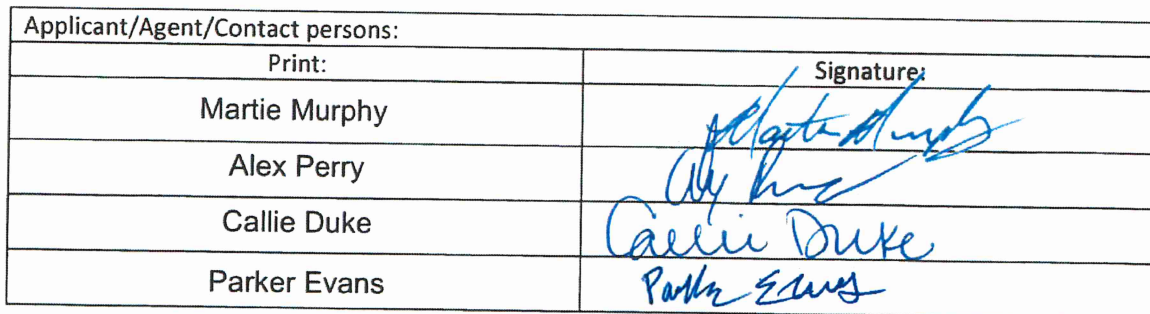 Applicant/Agent/Contact persons:
Print: Signature:
Martie Murphy Martie Murphy
Alex Perry Alex Perry
Callie Duke Callie Duke
Parker Evans Parker Evans